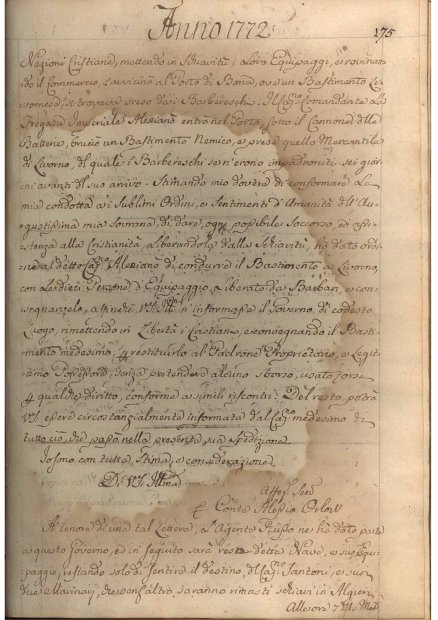 Anno 1772 175
Nazioni Cristiane, mettendo in Schiavitù i Loro Equipaggi, e rovinan-
do il Commercio, s'avvicinò al Porto di Bona, ove un Bastimento Li-
vornese si trovava preso dai Barbereschi. Il Cap.no Comandante La
Fregata Imperiale entrò nel Porto, sotto il Cannone delle
Batterie, bruciò un Bastimento Nemico, e prese quello Mercantile
di Livorno, del quale i Barbereschi se n'erano impadroniti sei gior-
ni avanti del suo arrivo. Stimando mio dovere di conformare La
mia condotta ai Sublimi Ordini, e Sentimenti d'Umanità dell'Au-
gustissima mia Sovrana, di dare ogni possibile Soccorso, ed assi-
stenza alla Cristianità, liberandola dalla Schiavitù, ho dato ordi-
ne al detto Cap.no di condurre il Bastimento a Livorno,
con Le dieci Persone d'Equipaggio liberate dai Barbari, e con-
segnarzelo, affinchè V.S. Ill.ma ne informasse il Governo di codesto
Luogo, rimettendo in Libertà i Cristiani, e consegnando il Basti-
mento medesimo p restituirlo al Padrone Proprietario, e Legit-
timo Possessore, Senza pretendere alcuno sborso,
p qualche diritto, conforme a simili riscontri. Del resto potrà
V.S. essere circostanzialmente informata dal Cap.no medesimo di
tutto ciò, che passò nella presente sua Spedizione.
Io sono con tutta Stima, e considerazione
Di V.S. Ill.ma
Conte Alessio Orlow
A tenore di una tal Lettera, L'Agente Russo ne hà dato parte
a questo Governo, ed in seguito sarà resa detta Nave, e suo Equi-
paggio, restando solo di Sentire il destino del Cap.no Santoni, e suoi
due Marinari, che senz'altro saranno rimasti schiavi in Algeri.